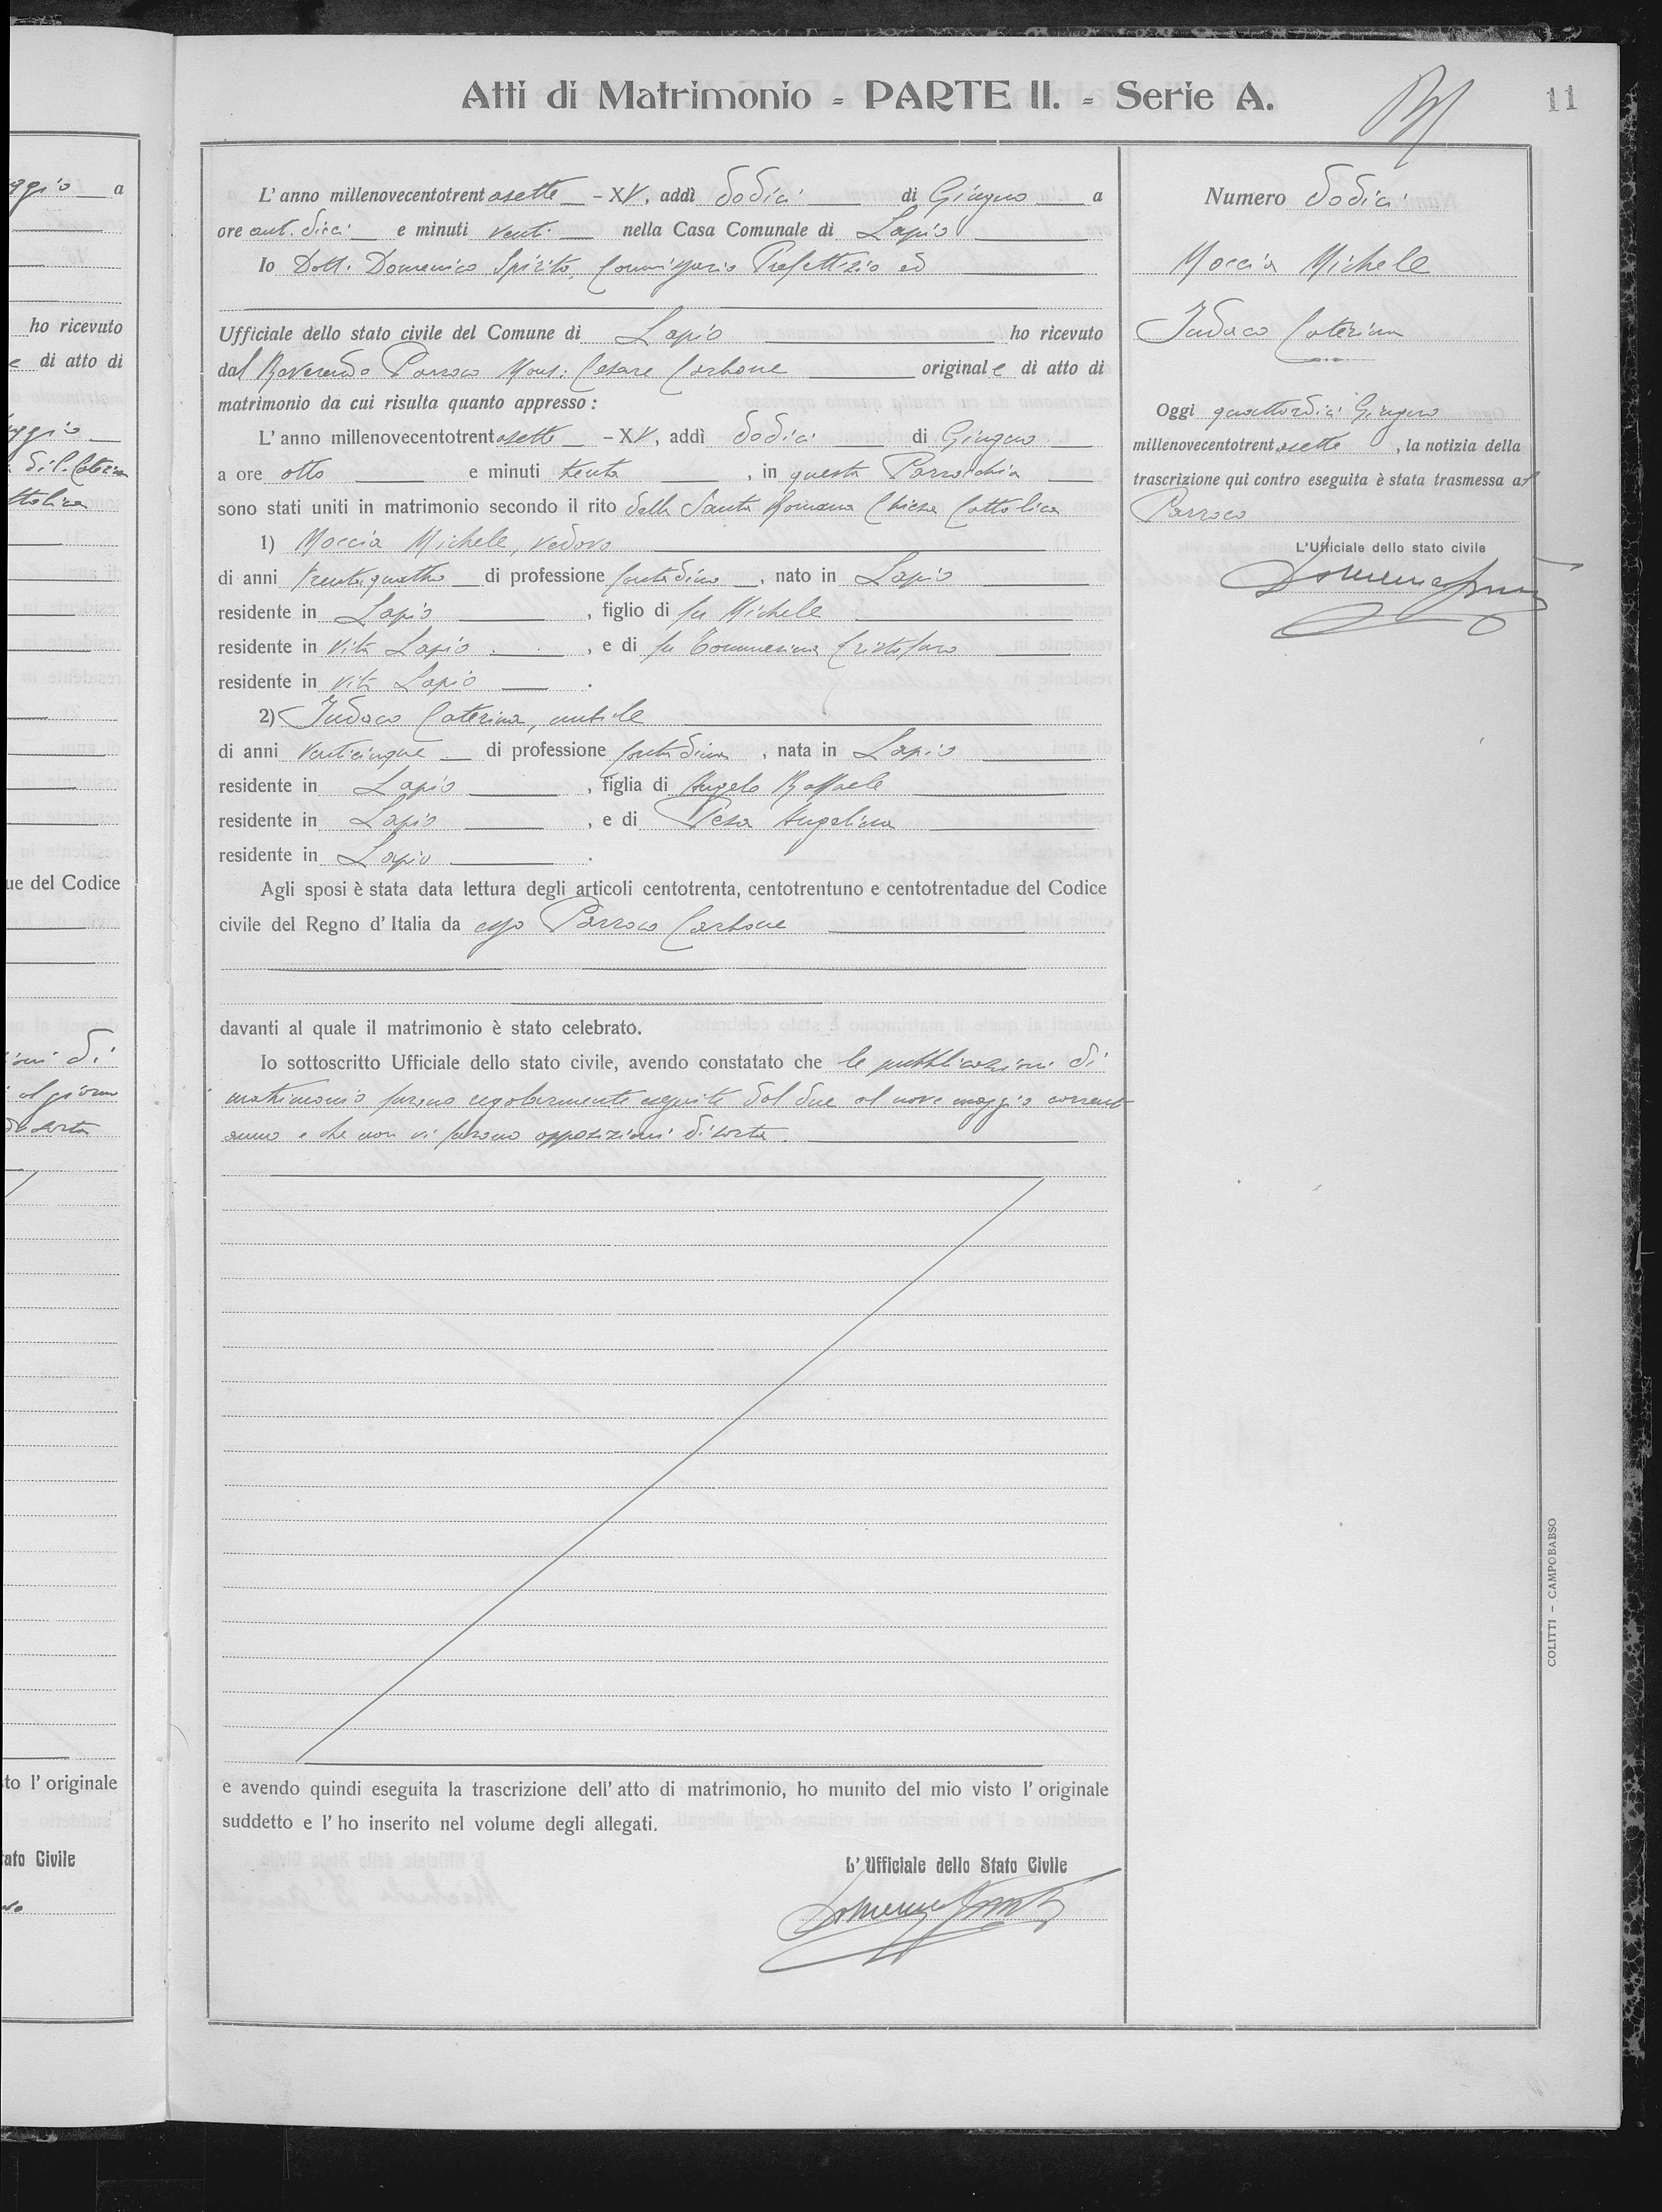 Atti di Matrimonio = PARTE II. = Serie A.
11
L'anno millenovecentotrentasette - XV, addì dodici di Giugno a
ore ant. dieci e minuti venti nella Casa Comunale di Lapio
Io Dott. Domenico Spirito, Commissario Prefettizio ed
Ufficiale dello stato civile del Comune di Lapio ho ricevuto
dal Reverendo Parroco Mons: Cesare Carbone originale di atto di
matrimonio da cui risulta quanto appresso :
L'anno millenovecentotrentasette - XV, addì dodici di Giugno
a ore otto e minuti trenta, in questa Parrocchia
sono stati uniti in matrimonio secondo il rito della Santa Romana Chiesa Cattolica
1) Moccia Michele, vedovo
di anni trentaquattro di professione contadino, nato in Lapio
residente in Lapio, figlio di fu Michele
residente in vita Lapio, e di fu Tommasina Cristofaro
residente in vita Lapio.
2) Iudaco Caterina, nubile
di anni venticinque di professione contadina, nata in Lapio
residente in Lapio, figlia di Angelo Raffaele
residente in Lapio, e di Pesa Angelina
residente in Lapio.
Agli sposi è stata data lettura degli articoli centotrenta, centotrentuno e centotrentadue del Codice
civile del Regno d'Italia da esso Parroco Carbone
davanti al quale il matrimonio è stato celebrato.
Io sottoscritto Ufficiale dello stato civile, avendo constatato che le pubblicazioni di
matrimonio furono regolarmente eseguite dal due al nove maggio corrente
anno e che non vi furono opposizioni di sorta.
e avendo quindi eseguita la trascrizione dell'atto di matrimonio, ho munito del mio visto l'originale
suddetto e l'ho inserito nel volume degli allegati.
L'Ufficiale dello Stato Civile
Numero dodici
Moccia Michele
Iudaco Caterina
Oggi quattordici Giugno
millenovecentotrentasette, la notizia della
trascrizione qui contro eseguita è stata trasmessa al
Parroco
L'Ufficiale dello stato civile
COLITTI - CAMPOBASSO
ggio a
ho ricevuto
e di atto di
ggio
ttolica
ue del Codice
ioni di
al giorno
di sorta
to l'originale
ato Civile